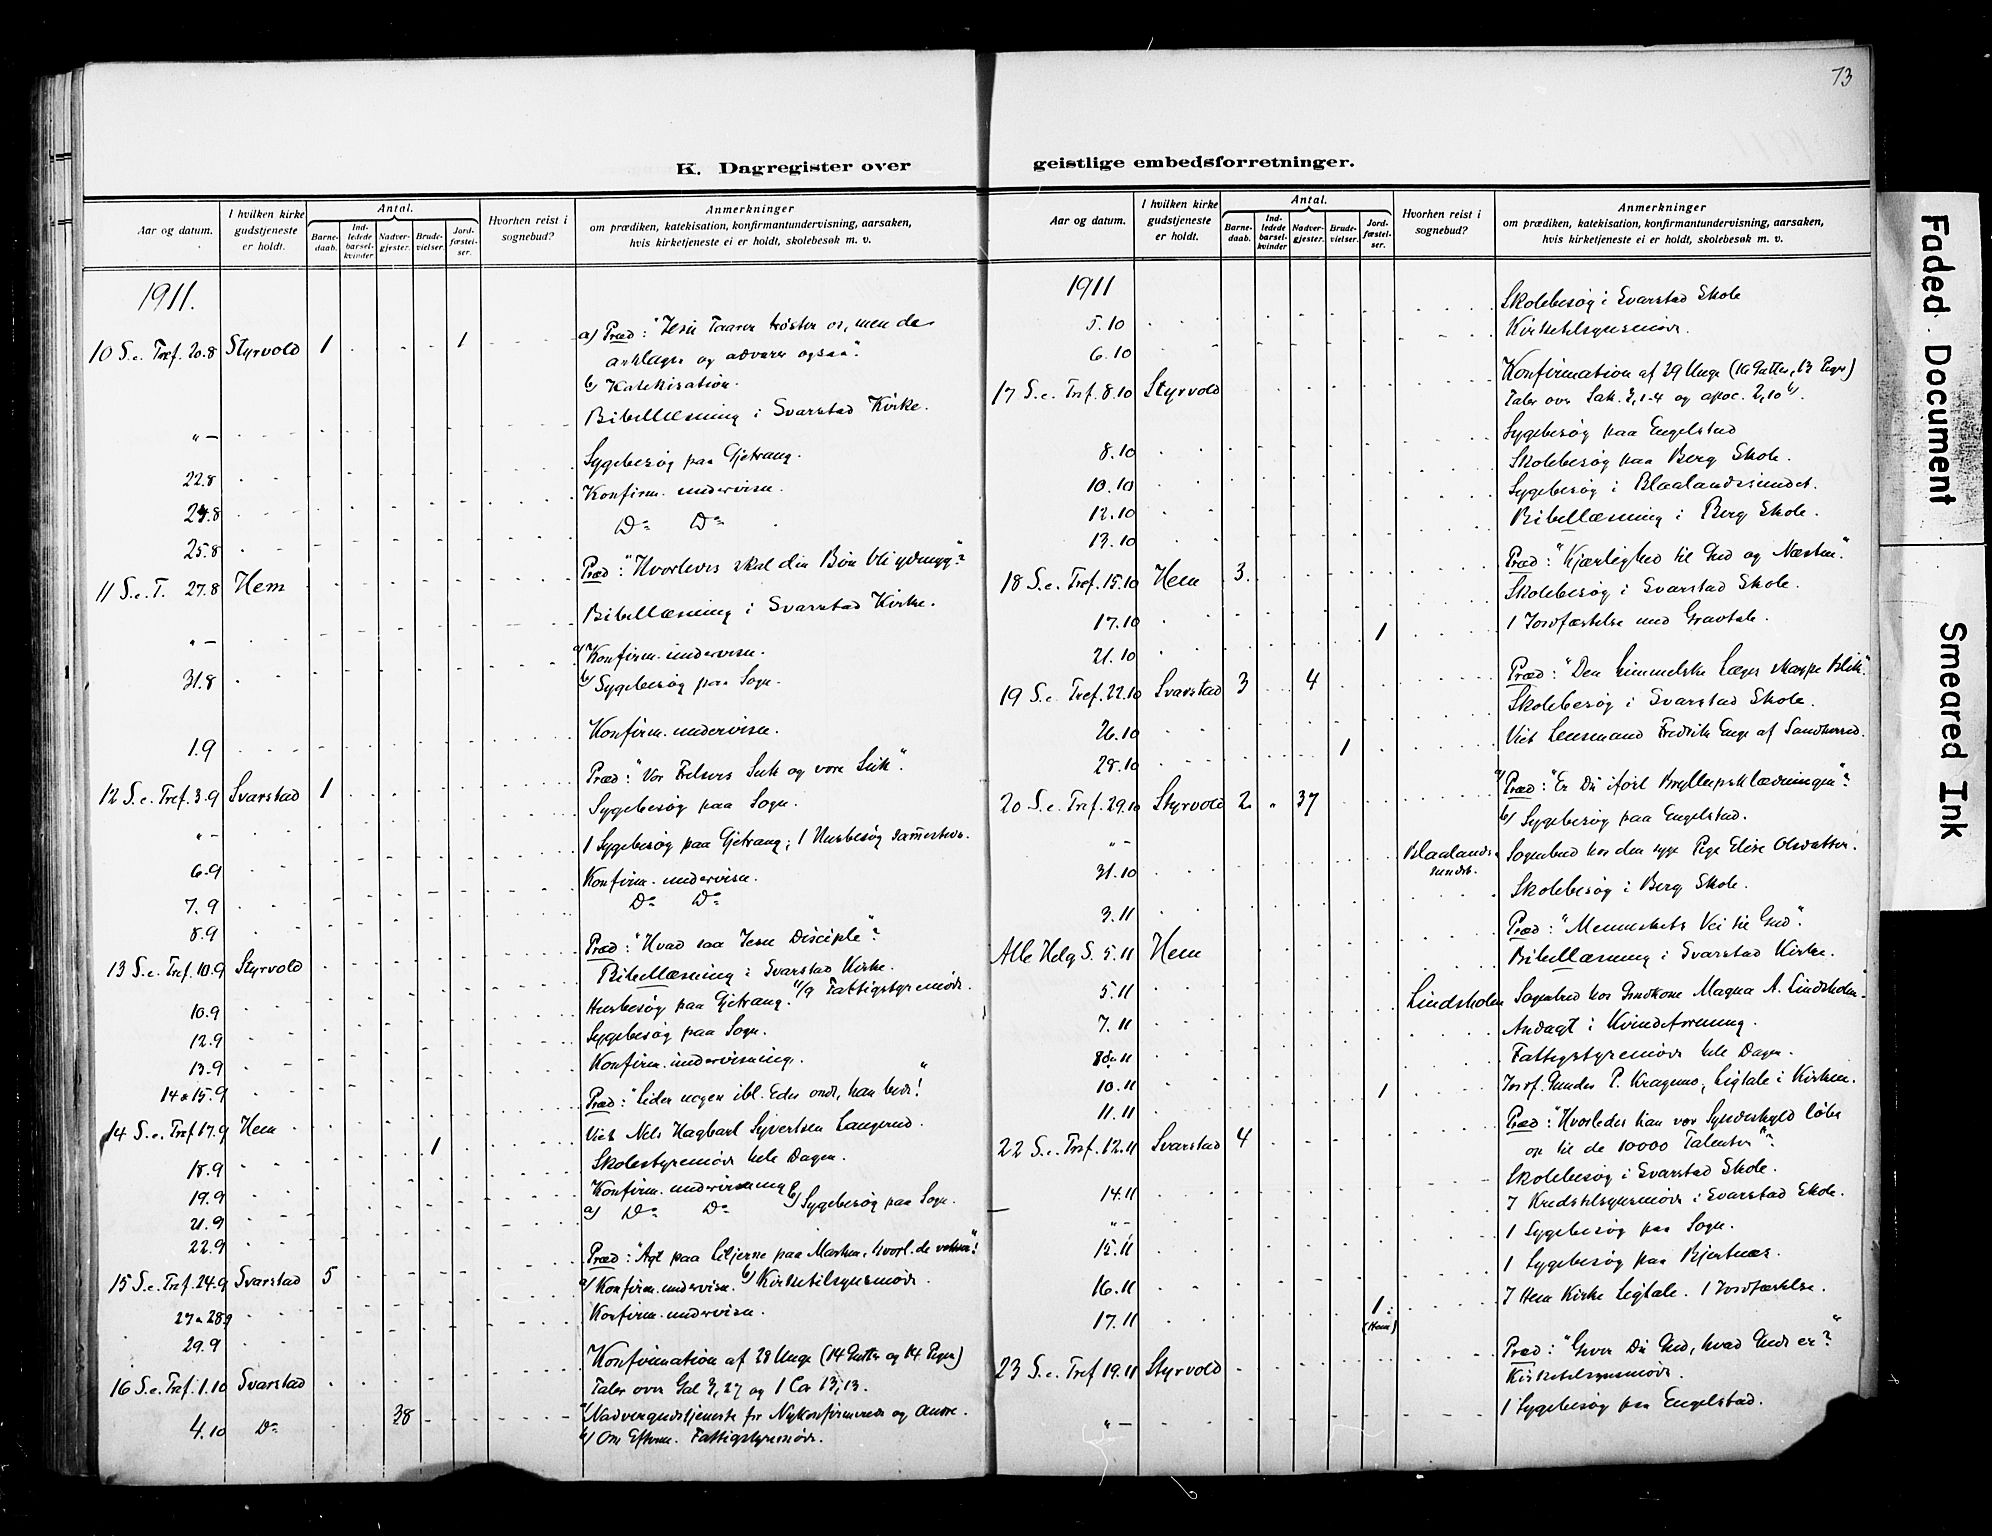 73
K. Dagregister over geistlige embedsforretninger.
Aar og datum.
I hvilken kirke gudstjeneste er holdt.
Antal.
Barne-daab.
Ind-ledede barsel-kvinder
Nadver-gjester.
Brude-vielser.
Jord-fæstel-ser.
Hvorhen reist i sognebud?
Anmerkninger
om prædiken, katekisation, konfirmantundervisning, aarsaken,
hvis kirketjeneste ei er holdt, skolebesøk m. v.
1911.
10 S. e. Tref. 20.8 Styrvold 1 1 a) Præd: "Jesu Taarer trøster os, men de
anklager og advarer ogsaa".
b) Katekisation.
" — Bibellæsning i Svarstad Kirke.
22.8 Sygebesøg paa Gjetrang.
24.8 Konfirm. undervisn.
25.8 Do Do
11 S. e. T. 27.8 Hem Præd: "Hvorledes skal din Bøn bli ydmyg"?
" — Bibellæsning i Svarstad Kirke.
31.8 a) Konfirm. undervisn.
b) Sygebesøg paa Sogn.
1.9 Konfirm. undervisn.
12 S. e. Tref. 3.9 Svarstad 1 Præd: "Vor Frelsers Suk og vore Suk".
" — Sygebesøg paa Sogn.
6.9 1 Sygebesøg paa Gjetrang; 1 Husbesøg sammesteds.
7.9 Konfirm. undervisn.
8.9 Do Do
13 S. e. Tref. 10.9 Styrvold Præd: "Hvad saa Jesu Disciple"?
10.9 Bibellæsning i Svarstad Kirke.
12.9 Husbesøg paa Gjetrang. 11/9 Fattigstyremøde.
13.9 Sygebesøg paa Sogn.
14 o 15.9 Konfirm. undervisning.
14 S. e. Tref 17.9 Hem Præd: "Lider nogen ibl. Eder ondt, han bede"!
18.9 1 Viet Nels Hagbart Syvertsen Langerud.
19.9 Skolestyremøde hele Dagen.
21.9 Konfirm. undervisning
22.9 a) Do Do b) Sygebesøg paa Sogn.
15 S. e. Tref. 24.9 Svarstad 5 Præd: "Agt paa Liljerne paa Marken, hvorl. de vokser"!
27 o 28.9 a) Konfirm. undervisn. b) Kirketilsynsmøde.
29.9 Konfirm. undervisn.
16 S. e. Tref. 1.10 Svarstad Konfirmation af 28 Unge (14 Gutter og 14 Piger)
Taler over Gal 3, 27 og 1 Cor 13, 13.
4.10 Do 38 a) Nadvergudstjeneste for Nykonfirmerede og Andre.
b) Om Efterm. Fattigstyremøde.
Aar og datum.
I hvilken kirke gudstjeneste er holdt.
Antal.
Barne-daab.
Ind-ledede barsel-kvinder
Nadver-gjester.
Brude-vielser.
Jord-fæstel-ser.
Hvorhen reist i sognebud?
Anmerkninger
om prædiken, katekisation, konfirmantundervisning, aarsaken,
hvis kirketjeneste ei er holdt, skolebesøk m. v.
1911
5.10 Skolebesøg i Svarstad Skole
6.10 Kirketilsynsmøde.
17 S. e. Tref. 8.10 Styrvold Konfirmation af 29 Unge (16 Gutter, 13 Piger)
Taler over Sak. 3, 1-4 og Apoc. 2, 10
8.10 Sygebesøg paa Engelstad
10.10 Skolebesøg paa Berg Skole.
12.10 Sygebesøg i Blaalandsundet.
13.10 Bibellæsning i Berg Skole.
18 S. e. Tref. 15.10 Hem 3 Præd: "Kjærlighed til Gud og Næsten".
17.10 Skolebesøg i Svarstad Skole.
21.10 1 1 Jordfæstelse med Gravtale.
19 S. e. Tref. 22.10 Svarstad 3 4 Præd: "Den himmelske Læges skarpe Blik".
26.10 Skolebesøg i Svarstad Skole.
28.10 1 Viet Lensmand Fredrik Enge af Sandherred.
20 S. e. Tref. 29.10 Styrvold 2 " 37 a) Præd: "Er Du iført Bryllupsklædningen"?
" — b) Sygebesøg paa Engelstad.
31.10 Blaalandsundet. Sognebud hos den syge Pige Elise Olsdatter.
3.11 Skolebesøg i Berg Skole.
Alle Helg S. 5.11 Hem Præd: "Menneskets Vei til Gud".
5.11 Bibellæsning i Svarstad Kirke.
7.11 Lindsholm Sognebud hos Gmdkone Magna A. Lindsholm.
8de 11 Andagt i Kvindeforening.
10.11 Fattigstyremøde hele Dagen.
11.11 1 Jordf. Gunder P. Kragmo, Ligtale i Kirken.
22 S. e. Tref. 12.11 Svarstad 4 Præd: "Hvorledes kan vor Syndeskyld løbe
op til de 10000 Talenter"?
14.11 Skolebesøg i Svarstad Skole.
" — I Kredstilsynsmøde i Svarstad Skole.
15.11 1 Sygebesøg paa Sogn.
16.11 1 Sygebesøg paa Bjertnæs.
17.11 1 (Hem) I Hem Kirke Ligtale. 1 Jordfæstelse.
23 S. e. Tref 19.11 Styrvold Præd: "Giver Du Gud, hvad Guds er"?
Kirketilsynsmøde.
" — 1 Sygebesøg paa Engelstad.
Faded Document
Smeared Ink